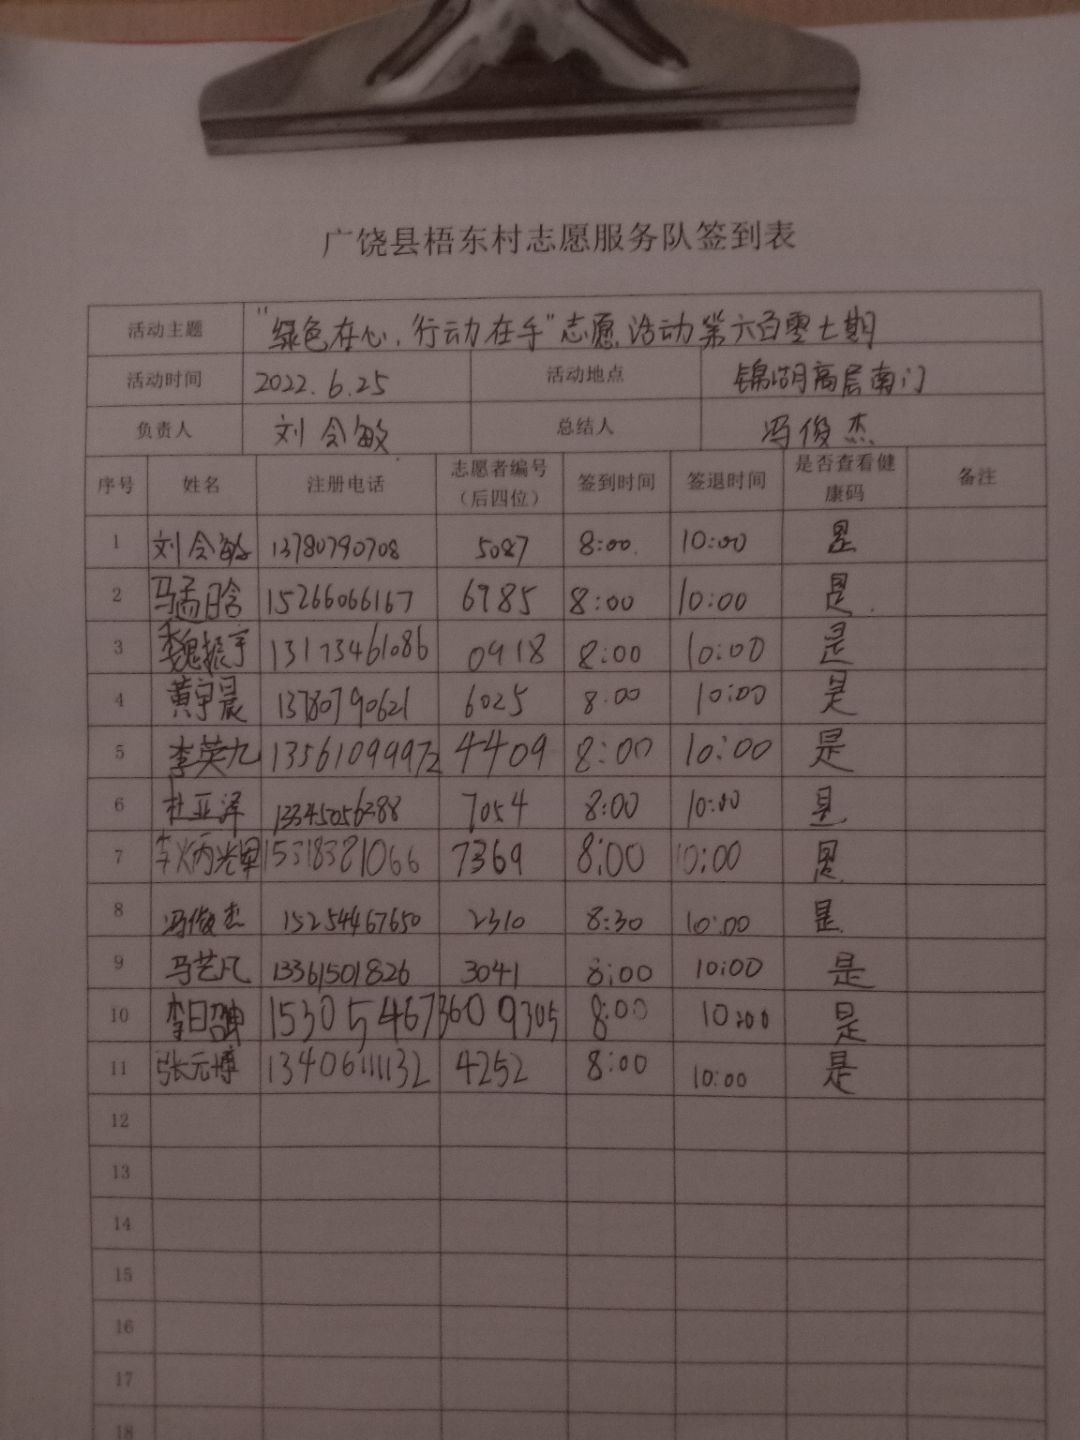 广饶县梧东村志愿服务队签到表
活动主题 “绿色在心，行动在手”志愿活动第六百零七期
活动时间 2022.6.25 活动地点 锦湖高层南门
负责人 刘会敏 总结人 冯俊杰
序号 姓名 注册电话 志愿者编号（后四位） 签到时间 签退时间 是否查看健康码 备注
1 刘会敏 13780790708 5087 8:00 10:00 是
2 马孟晗 15266066167 6985 8:00 10:00 是
3 魏振宇 13173461086 0918 8:00 10:00 是
4 黄宇晨 13780790621 6025 8:00 10:00 是
5 李英九 13561099972 4409 8:00 10:00 是
6 杜亚泽 13345056288 7054 8:00 10:00 是
7 李炳辉 15318381066 7369 8:00 10:00 是
8 冯俊杰 15254467650 2310 8:30 10:00 是
9 马艺凡 13361501826 3041 8:00 10:00 是
10 15305467360 9305 8:00 10:00 是
11 张元博 13406111132 4252 8:00 10:00 是
12
13
14
15
16
17
18